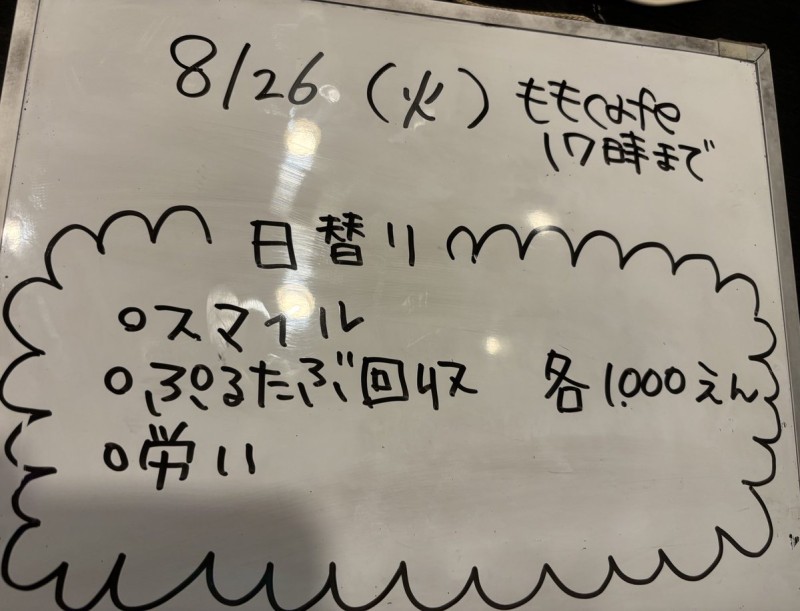 8/26 (火) ももcafe
17時まで
日替り
○スマイル
○ぷるたぶ回収 各1.000えん
○労い